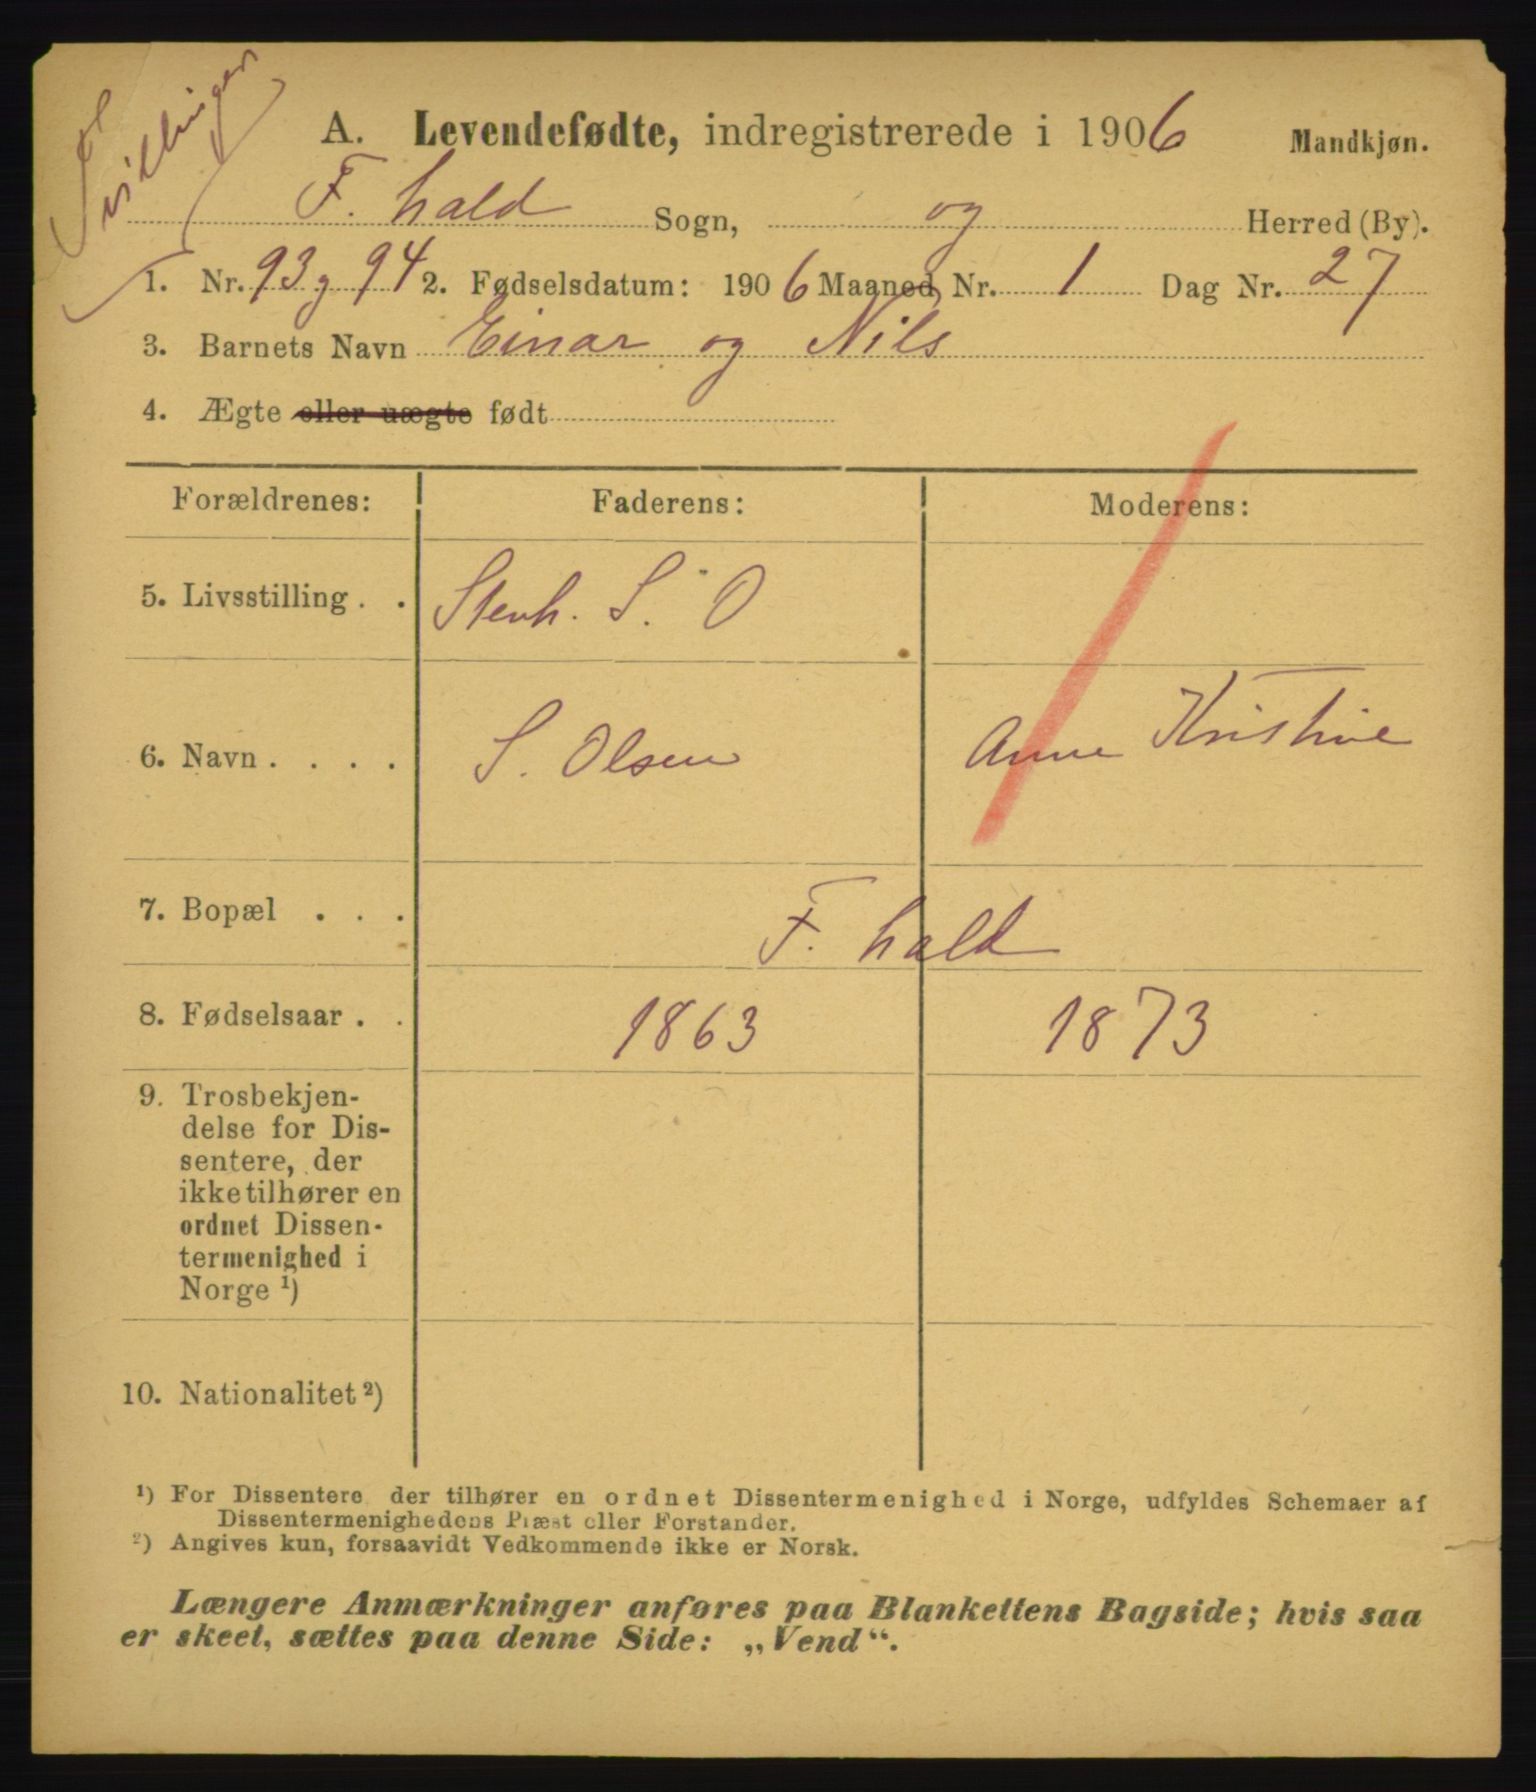 Tvillinger
A. Levendefødte, indregistrerede i 1906 Mandkjøn.
F. hald Sogn, og Herred (By).
1. Nr. 93 g 94 2. Fødselsdatum: 1906 Maaned Nr. 1 Dag Nr. 27
3. Barnets Navn Einar og Nils
4. Ægte eller uægte født
Forældrenes: Faderens: Moderens:
5. Livsstilling . . Stenh. S. O
6. Navn . . . . S. Olsen Anne Kristine
7. Bopæl . . . F. hald
8. Fødselsaar . . 1863 1873
9. Trosbekjen-
delse for Dis-
sentere, der
ikke tilhører en
ordnet Dissen-
termenighed i
Norge ¹)
10. Nationalitet ²)
¹) For Dissentere der tilhører en ordnet Dissentermenighed i Norge, udfyldes Schemaer af
Dissentermenighedens Præst eller Forstander.
²) Angives kun, forsaavidt Vedkommende ikke er Norsk.
Længere Anmærkninger anføres paa Blankettens Bagside; hvis saa
er skeet, sættes paa denne Side: „Vend“.